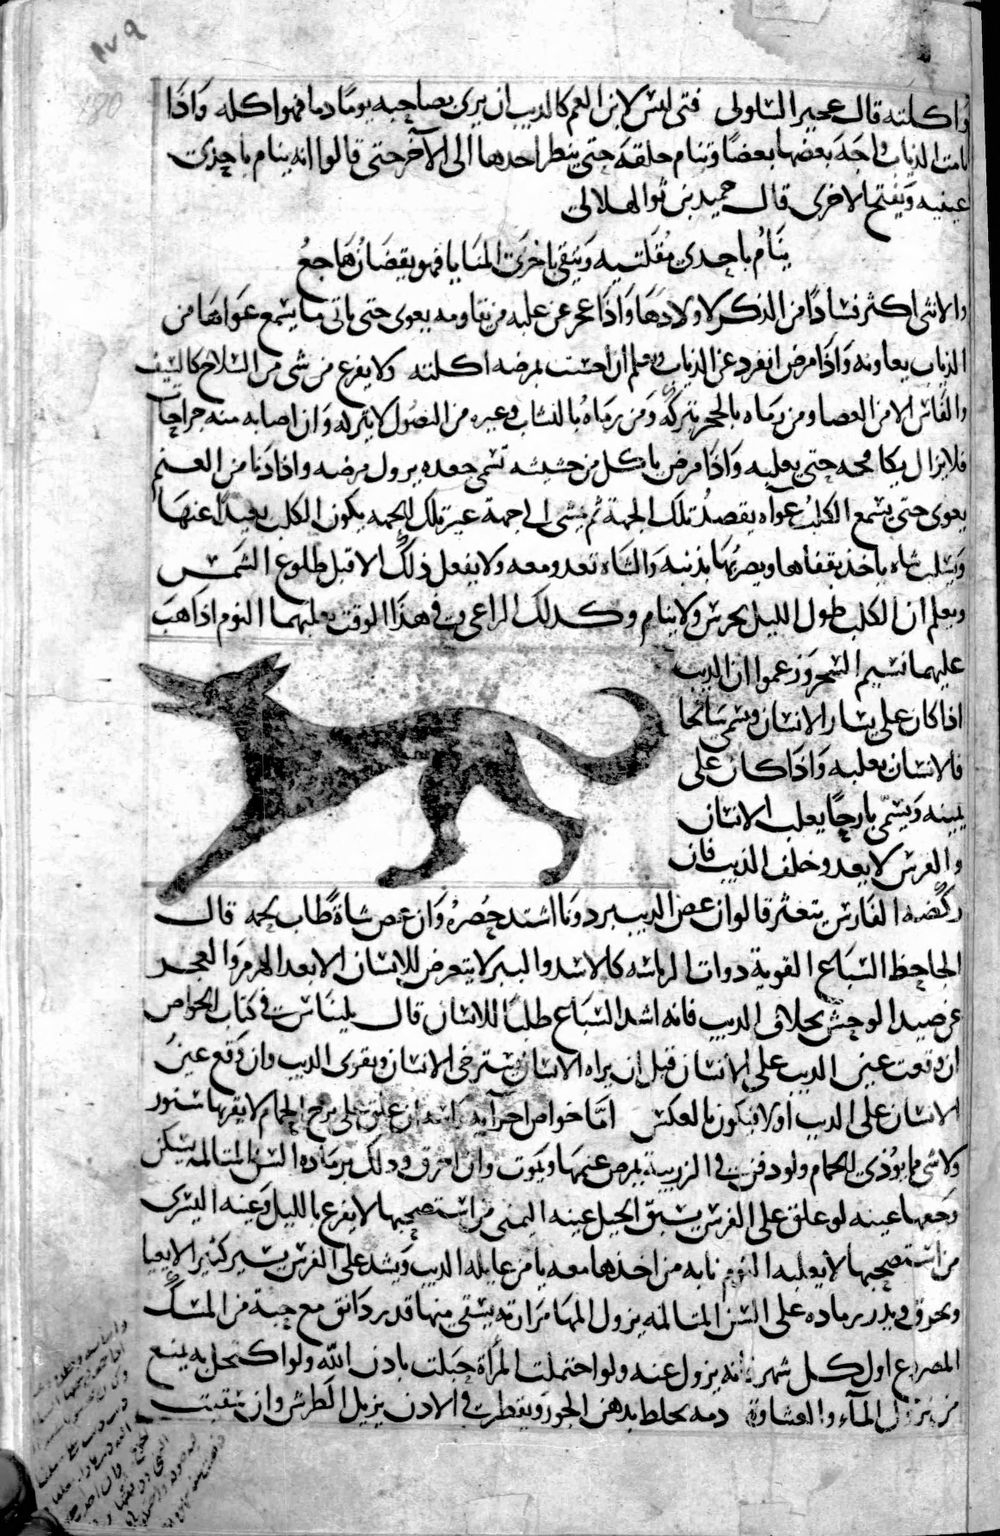 ١٧٩
180
واكلته قال عجير السلولى فتى ليس لابن العم كالديب ان يرى بصاحبه يوما دما فهو اكله واذا
نامت الذياب واجه بعضها بعضا وتنام حلقة حتى ينظر احدها الى الآخر حتى قالوا انه ينام باحدى
عينيه ويفتح الاخرى قال حميد بن ثور الهلالى
ينام باحدى مقلتيه ويتقى باخرى المنايا فهو يقضان هاجع
والانثى اكثر فسادا من الذكر لاولادها واذا عجز عن غلبه من يقاومه يعوى حتى ياتى ما يسمع عواها من
الذياب يعاونه واذا مرض انفرد عن الذياب ويعلم ان احست بمرضه اكلته ولا يفزع من شى من السلاح كالسيف
والفاس الا من العصا ومن رماه بالحجر يتركه ومن رماه بالنشاب وغيره من النصول لا يتركه وان اصابه منه جراحا
فلا يزال يكافحه حتى يغلبه واذا مرض ياكل من حشيشه تسمى جعده يزول مرضه واذا دنا من الغنم
يعوى حتى يسمع الكلب عواه يقصد تلك الجهة ثم يمشى الى جهة غير تلك الجهه يكون الكلب بعيدا عنها
ويسلب شاه ياخذ بقفاها ويضربها بذنبه والشاه تعدو معه ولا يفعل ذلك الا قبل طلوع الشمس
ويعلم ان الكلب طول الليل يحرس ولا ينام وكذلك الراعى وفى هذا الوقت يغلبهما النوم اذا هب
عليهما نسيم السحر وزعموا ان الديب
اذا كان على يسار الانسان ويسمى سانحا
فالانسان يغلبه واذا كان على
يمينه ويسمى بارحا يغلب الانسان
والفرس لا يعدو خلف الديب فان
ركضه الفارس يتعثر قالوا ان عض الديب برذونا اشتد حضره وان عض شاة طاب لحمه قال
الجاحظ السباع القويه ذوات الرياسه كالاسد والببر لا يتعرض للانسان الا بعد الهرم والعجز
عن صيد الوحش بخلاف الديب فانه اشد السباع طلبا للانسان قال بليناس فى كتاب الخواص
ان وقعت عين الديب على الانسان قبل ان يراه الانسان يسترخى الانسان ويقوى الديب وان وقع عين
الانسان على الديب اولا فيكون بالعكس اما خواص اجزآيه راسه ان علق على برج الحمام لا يقربها سنور
ولا شى مما يوذى الحمام ولو دفن فى الزريبة يمرض غنمها ويموت وان احرق ودلك برماده السن المتالمه يسكن
وجعها عينه لو علق على الفرس يسبق الخيل عينه اليمنى من استصحبها لا يفزع بالليل وعينه اليسرى
من استصحبها لا يغلبه النوم نابه من اخذها معه يامن غايله الديب ويشد على الفرس يسير كثير الا يعيا
ويحرق ويذر رماده على السن المتالمه يزول المها مرارته يسقى منها قدر دانق مع حبة من المسك
المصروع اول كل شهر فانه يزول عنه ولو احتملت المراة حبلت باذن الله ولو اكتحل به يمنع
من نزول المآء والغشاوة دمه يخلط بدهن الجوز ويقطر فى الاذن يزيل الطرش وان سقيت